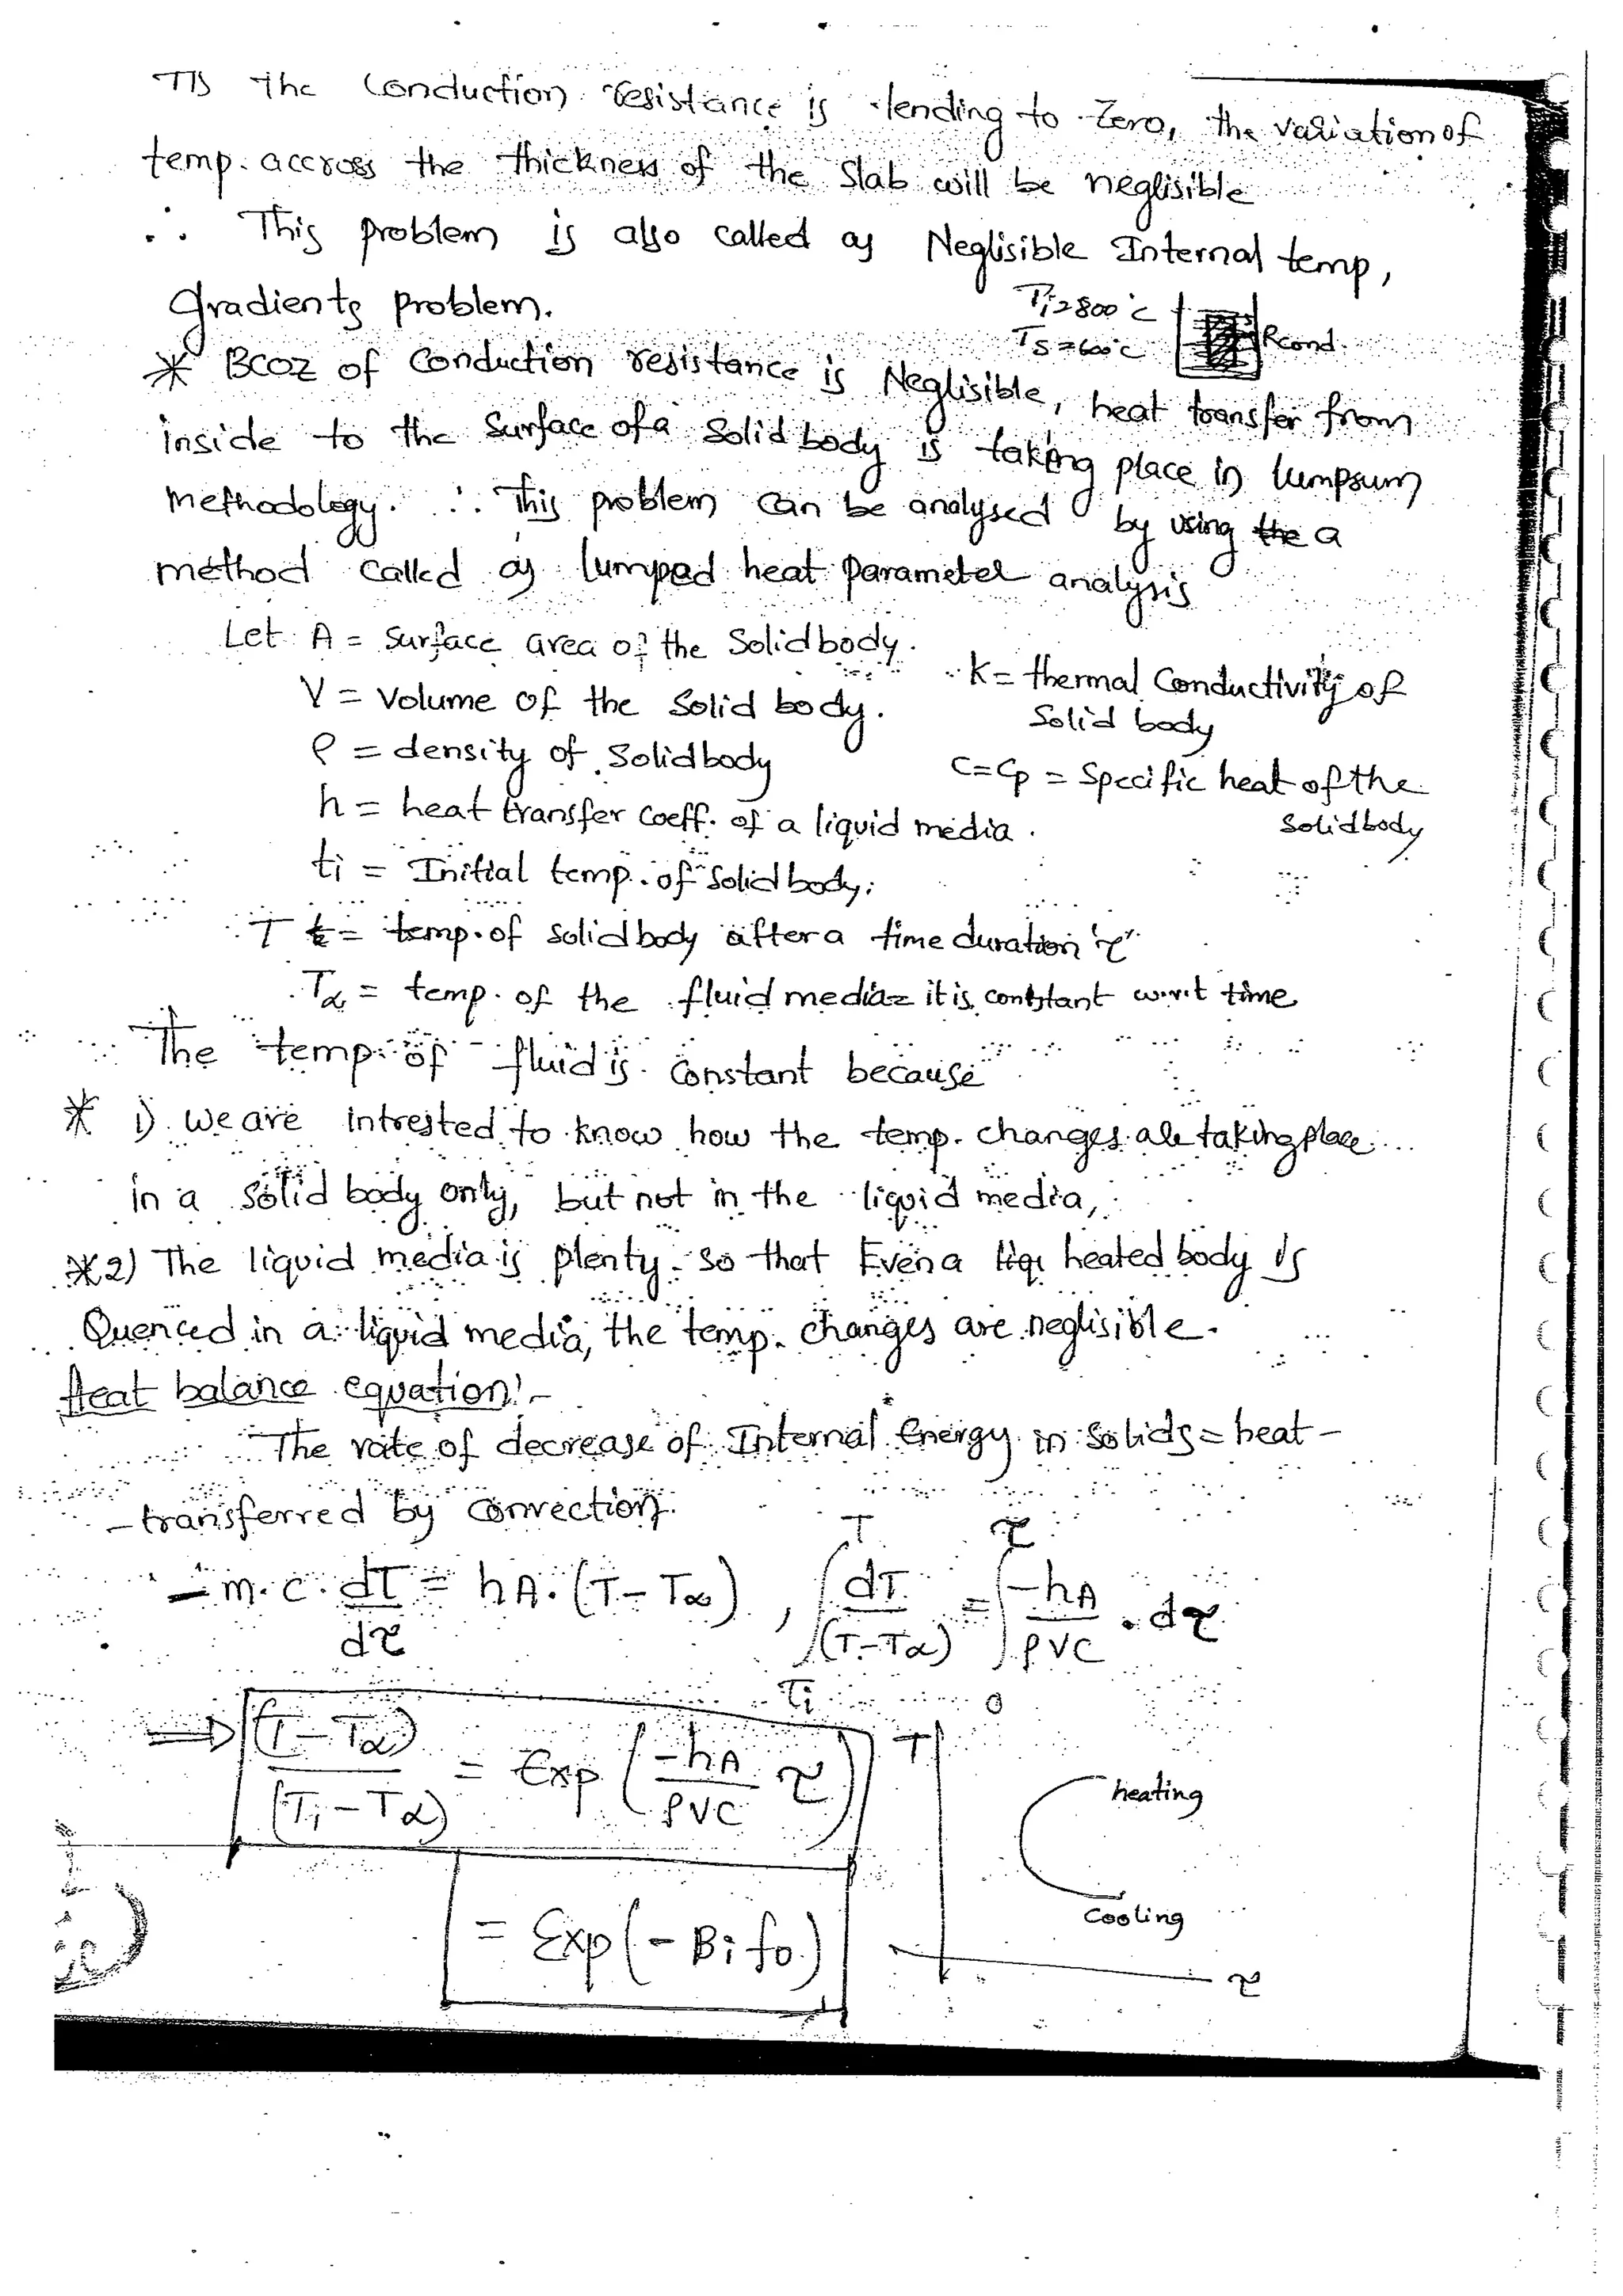 The Conduction resistance is tending to Zero, the variation of
temp. accross the thickness of the slab will be neglisible
∴ This problem is also called as Neglisible Internal temp,
gradients problem.
Ti=800°C
Ts=600°C Rcond.
* BCOZ of Conduction resistance is Neglisible, heat transfer from
inside to the surface of a solid body is taking place in lumpsum
methodology. ∴ This problem can be analysed by using the a
method called as lumped heat parameter analysis
Let A = surface area of the Solid body.
K = thermal Conductivity of
Solid body
V = Volume of the Solid body.
ρ = density of Solid body
C=Cp = Specific heat of the
Solid body
h = heat transfer coeff. of a liquid media.
ti = Initial temp. of solid body.
T t = temp. of solid body after a time duration 'τ'
T∝ = temp. of the fluid media = it is constant w.r.t time
The temp. of fluid is Constant because
* 1) We are intrested to know how the temp. changes are taking place
in a solid body only, but not in the liquid media,
*2) The liquid media is plenty so that Even a liqu heated body is
Quenced in a liquid media, the temp. changes are neglisible.
Heat balance equation:-
The rate of decrease of Internal Energy in solids = heat -
- transferred by convection.
- m.c. dT/dτ = hA.(T-T∞), ∫_Ti^T dT/(T-T∝) = ∫_0^τ -hA/ρVC . dτ
⇒ (T-T∝)/(Ti-T∝) = Exp (-hA/ρVC τ)
= Exp(-Bi fo)
T
heating
Cooling
τ